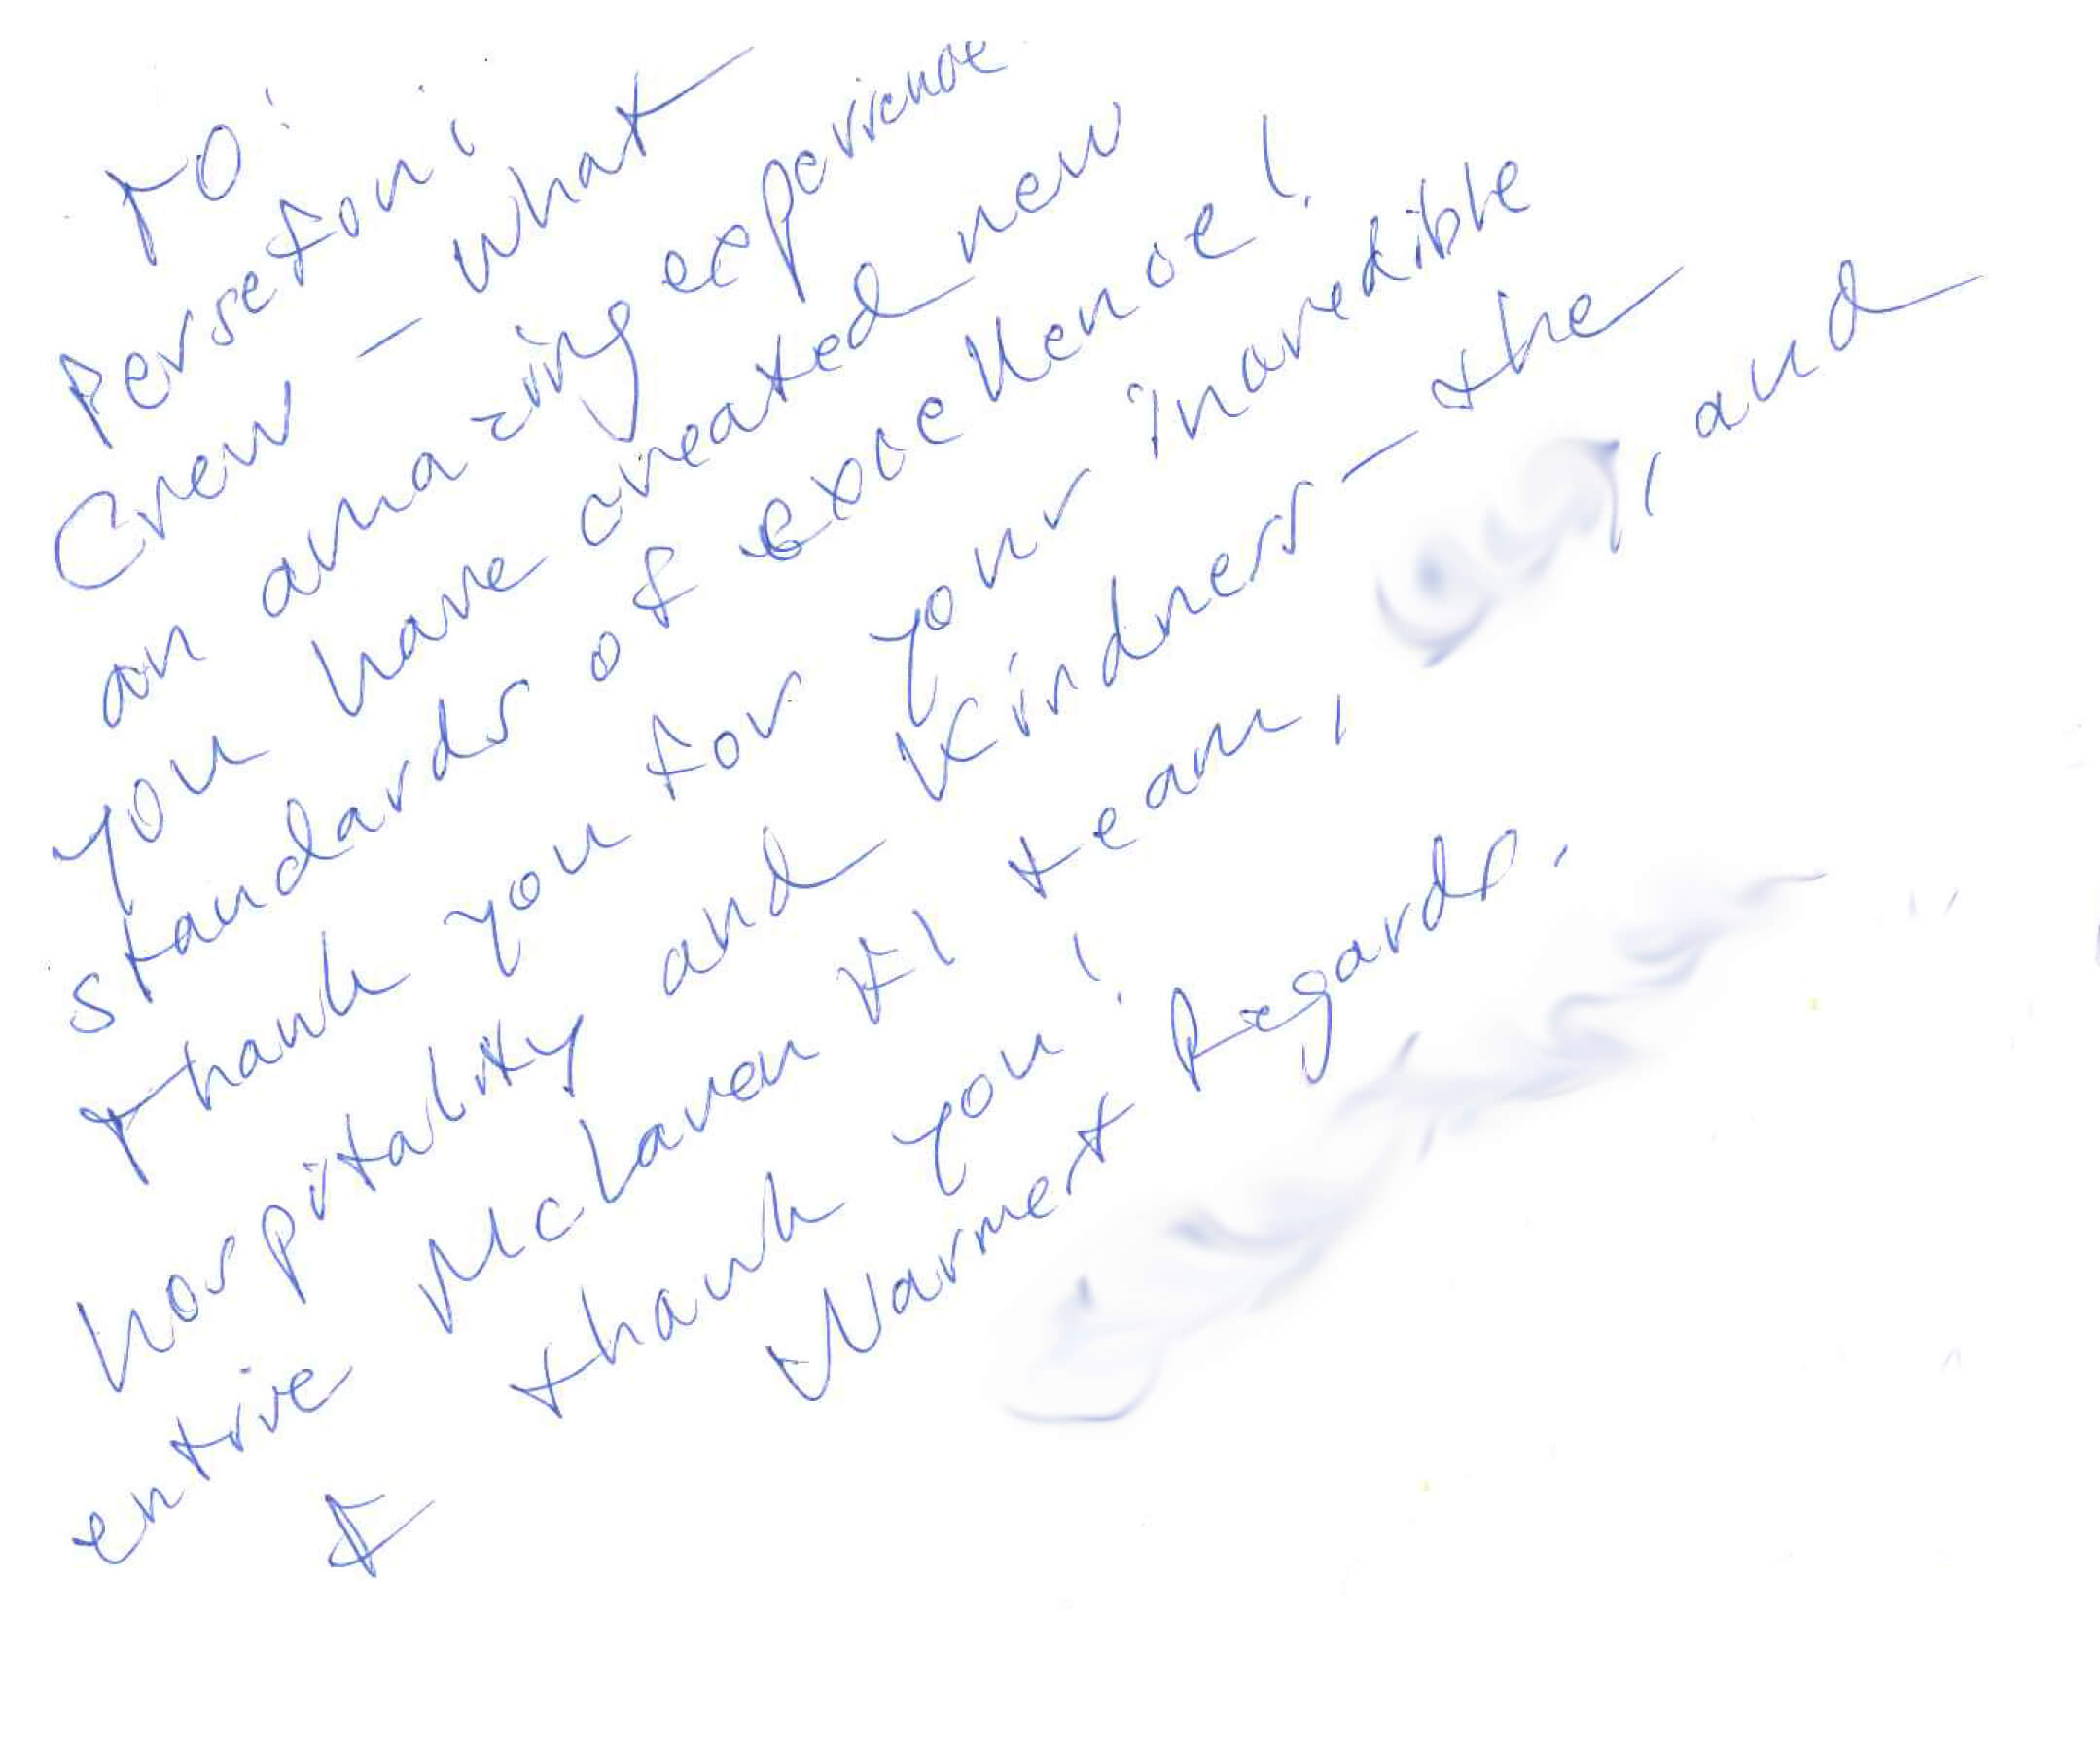 To:
Persefoni
Crew — What
an amazing experience
you have created new
standards of excellence!
Thank you for your incredible
hospitality and kindness — the
entire McLaren F1 team, , and
I thank you!
Warmest Regards.